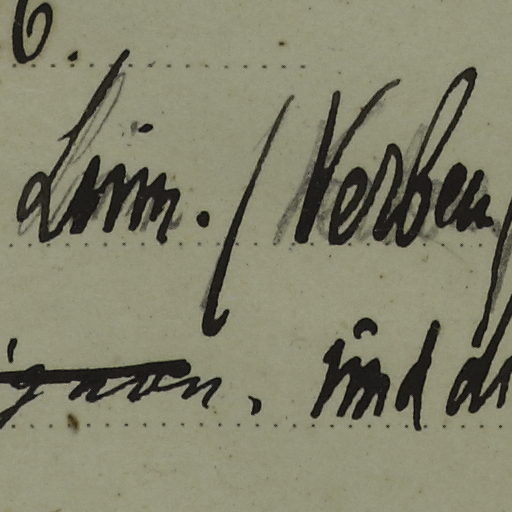 6.
Linn. (Verben
und di